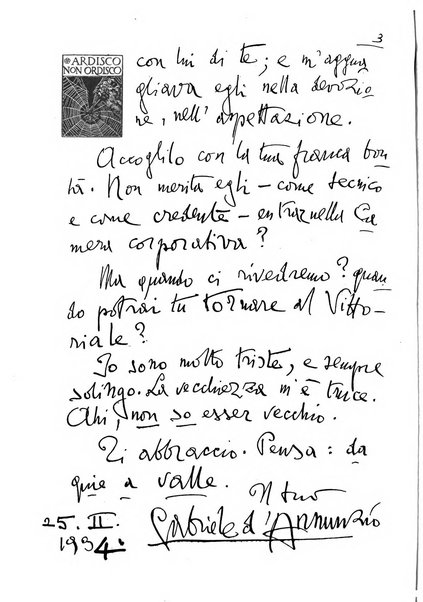 3
ARDISCO
NON ORDISCO
con lui di te; e m'aggua
gliava egli nella devozio
ne, nell'aspettazione.
Accoglilo con la tua franca bon
tà. Non merita egli – come tecnico
e come credente – entrar nella Ca
mera corporativa?
Ma quando ci rivedremo? quan
do potrai tu tornare al Vitto-
riale?
Io sono molto triste, e sempre
solingo. La vecchiezza m'è truce.
Ahi, non so esser vecchio.
Ti abbraccio. Pensa: da
qui e a valle.
Il tuo
25. II.
1934.
Gabriele d'Annunzio